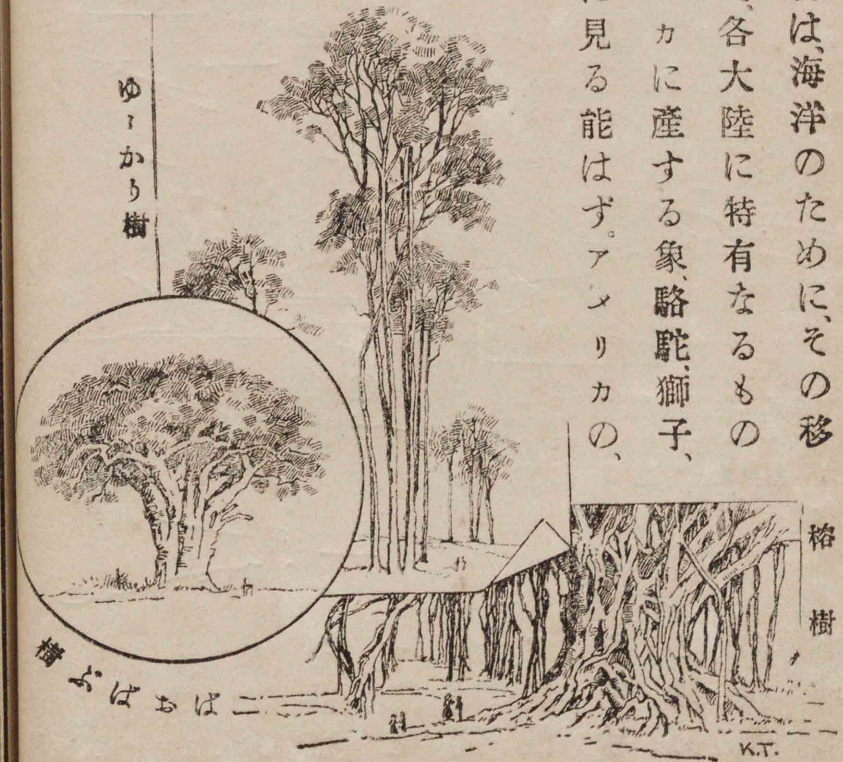 は、海洋のために、その移
、各大陸に特有なるもの
カに產する象、駱駝、獅子、
に見る能はず。アメリカの、
ゆーかり樹
榕樹
ばおばぶ樹
K.T.